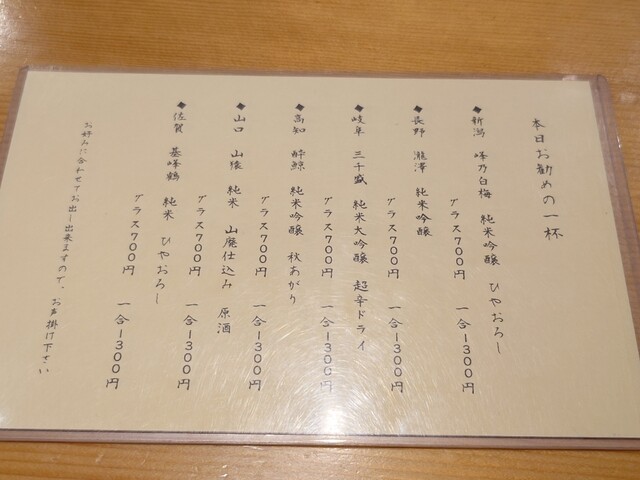 本日お勧めの一杯
◆新潟 峰乃白梅 純米吟醸 ひやおろし
グラス700円 一合1300円
◆長野 瀧澤 純米吟醸
グラス700円 一合1300円
◆岐阜 三千盛 純米大吟醸 超辛ドライ
グラス700円 一合1300円
◆高知 酔鯨 純米吟醸 秋あがり
グラス700円 一合1300円
◆山口 山猿 純米 山廃仕込み 原酒
グラス700円 一合1300円
◆佐賀 基峰鶴 純米 ひやおろし
グラス700円 一合1300円
お好みに合わせてお出し出来ますので、お声掛け下さい